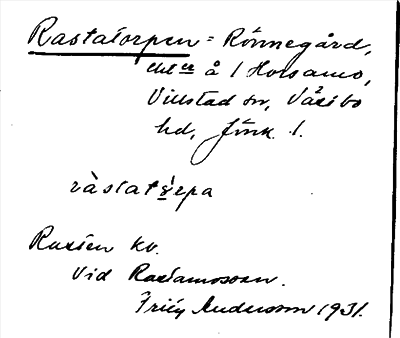 Rastatorpen = Rönnegård,
å 1 Horsamo,
Villstad sn, Västbo
hd, Jönk. l.
ràstatɤ́rpa
Rasten kv.
vid Rastamossen.
Andersson 1931.